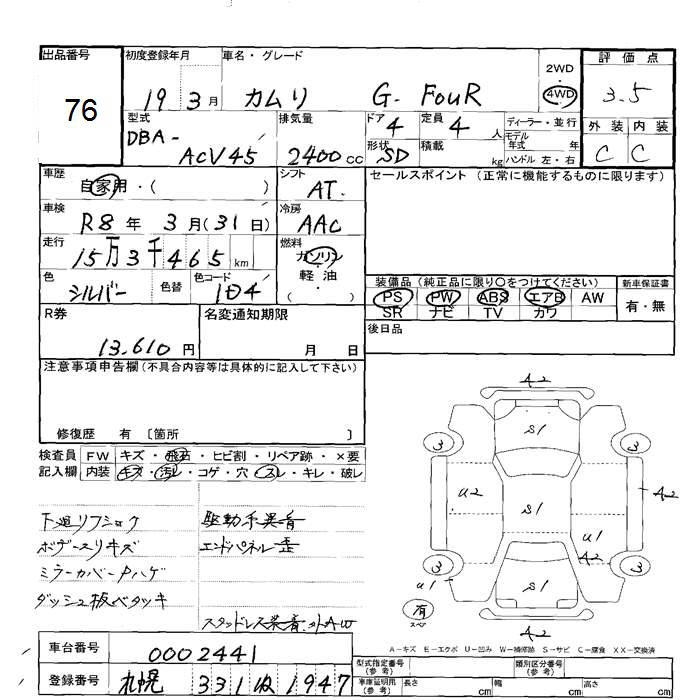 出品番号
76
初度登録年月
19 3月
車名・グレード
カムリ G-FouR
2WD
4WD
評価点
3.5
型式
DBA-
ACV45
排気量
2400cc
ドア 4
定員 4人
形状 SD
積載 kg
ディーラー・並行
モデル年式 年
ハンドル 左・右
外装 内装
C C
車歴
自家用・( )
シフト
AT.
セールスポイント (正常に機能するものに限ります)
車検
R8年 3月(31日)
冷房
AAC
走行
15万3千465km
燃料
ガソリン
・
軽油
( )
色
シルバー
色替
色コード
1D4
装備品 (純正品に限り○をつけてください)
新車保証書
PS PW ABS エアB AW
SR ナビ TV カワ
有・無
R券
13.610円
名変通知期限
月 日
後日品
注意事項申告欄 (不具合内容等は具体的に記入して下さい)
修復歴 有 〔箇所 〕
検査員
記入欄
FW キズ・飛石・ヒビ割・リペア跡・×要
内装 キズ・汚レ・コゲ・穴・スレ・キレ・破レ
下廻リフショク
駆動系異音
ボデースリキズ
エンドパネル歪
ミラーカバーPハゲ
ダッシュ板ベタツキ
スタッドレス装着.外AW
A2
S1
3 3
U2 S1 A2
U1
A2
3 3
U1 S1
有
スペア
A2
A-キズ E-エクボ U-凹み W-補修跡 S-サビ C-腐食 XX-交換済
車台番号
0002441
登録番号
札幌 331 1947
型式指定番号
(参考)
類別区分番号
(参考)
車庫証明用
(参考)
長さ cm
幅 cm
高さ cm